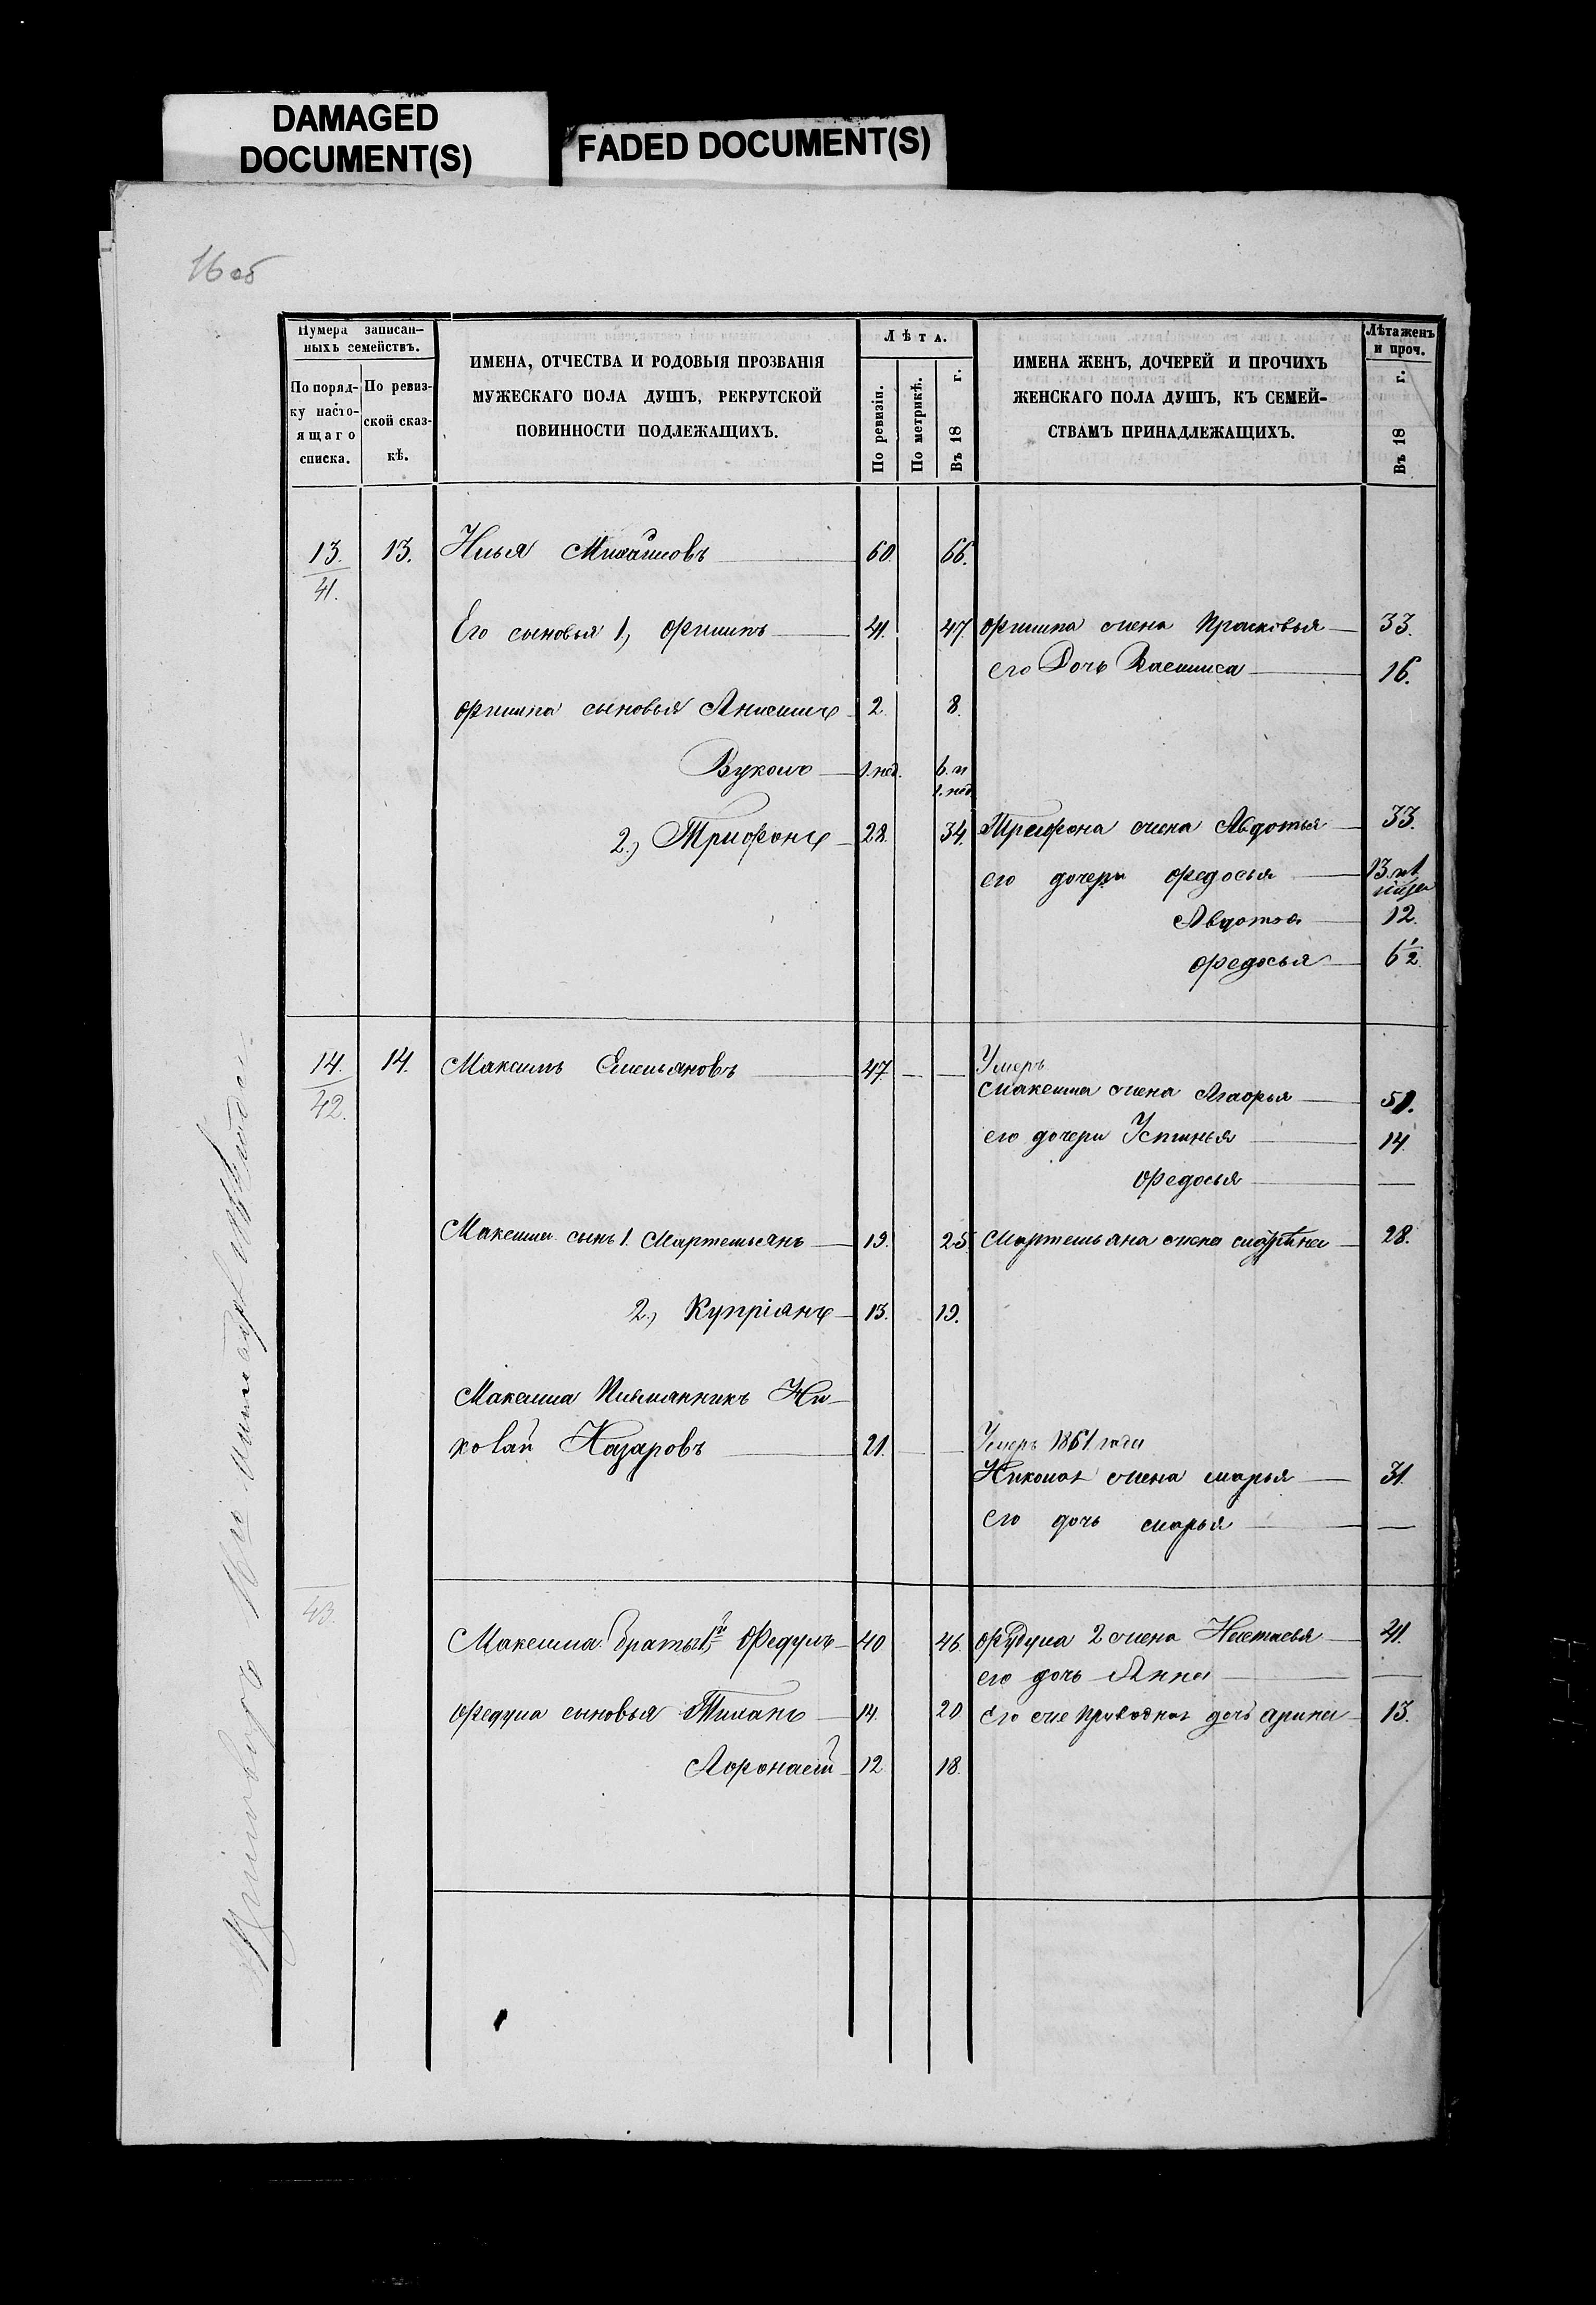 DAMAGED
DOCUMENT(S)
FADED DOCUMENT(S)
16 об
Нумера записан-
ныхъ семействъ.
По поряд-
ку насто-
ящаго
списка.
По ревиз-
ской сказ-
кѣ.
ИМЕНА, ОТЧЕСТВА И РОДОВЫЯ ПРОЗВАНІЯ
МУЖЕСКАГО ПОЛА ДУШЪ, РЕКРУТСКОЙ
ПОВИННОСТИ ПОДЛЕЖАЩИХЪ.
Лѣта.
По ревизіи.
По метрикѣ.
Въ 18 г.
ИМЕНА ЖЕНЪ, ДОЧЕРЕЙ И ПРОЧИХЪ
ЖЕНСКАГО ПОЛА ДУШЪ, КЪ СЕМЕЙ-
СТВАМЪ ПРИНАДЛЕЖАЩИХЪ.
Лѣта женъ
и проч.
Въ 18 г.
13. 13. Илья Михайловъ 60. 66.
41.
Его сыновья 1, Филипъ 41. 47 Филипа жена Прасковья 33.
его Дочь Васлиса 16.
Филипа сыновья Анисимъ 2 8.
Вуколъ 1. нед. 6. и
1. нед
2.) Трифонъ 28. 34. Трифона жена Авдотья 33.
его дочери Федосья 13.
Авдотья 12.
Федосья 6 1/2.
14. 14. Максимъ Емельяновъ 47. — — Умеръ
42.
Максима жена Агафья 51.
его дочери Устинья 14.
Федосья —
Максима сынъ 1. Мартемьянъ 19. 25. Мартемьяна жена 28.
2.) Купріянъ 13. 19.
Максима Племянникъ Ни-
колай Назаровъ 21. — — Умеръ 1861 года
Николая жена Марья 31.
его дочь Марья —
43.
Максима братья 1й Федулъ 40 46. Федула 2 жена Настасья 41.
его дочь Анна —
Федула сыновья Тихонъ 14. 20 Его еще Приводная дочь Арина 13.
Афонасий 12 18.